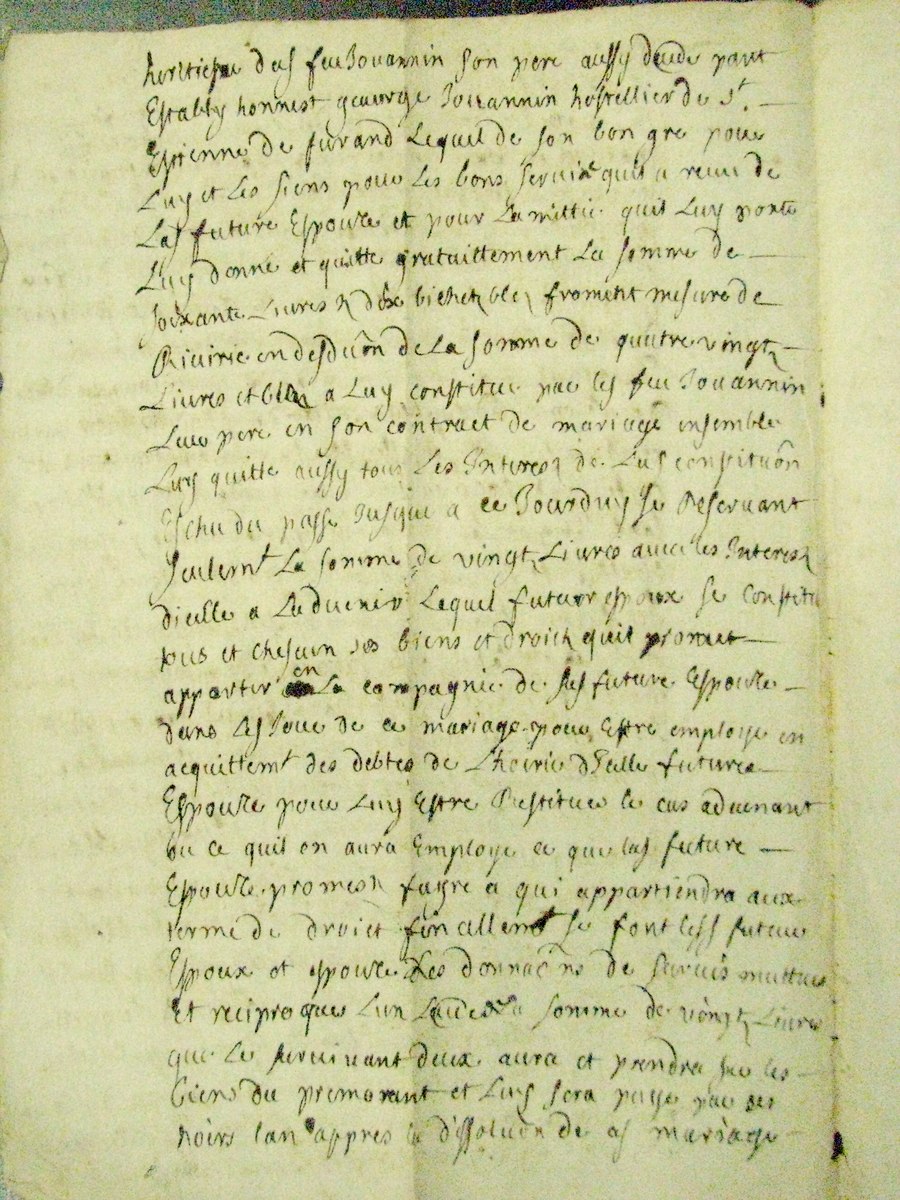 heritiere dud feu Jouannin son pere aussy deude part
Estably honnest george Jouannin hostellier de St. —
Estienne de furand Lequel de son bon gre pour
Luy et Les siens pour Les bons servixe quil a receu de
Lad future Espouze et pour Lamittie quil Luy porte
Luy donne et quitte gratuittement La somme de —
soixante Livres & dix bichetz bled froment mesure de
Riuirie en desduon de La somme de quatre vingtz —
Livres et bled a Luy constitue par led feu Jouannin
Leur pere en son contract de mariage ensemble
Luy quitte aussy tous Les Interestz de Lad constituon
Eschu du passe Jusque a ce Jourduy se Reservant
seulemt La somme de vingtz Livres avec les Interestz
dicelle a Laduenir Lequel futeur espoux se constitu
tous et chesun ses biens et droictz quil promet —
apporter en La compagnie de sad future Espouze —
dans Led Jour de ce mariage pour Estre employe en
acquittemt des debtes de Lhoirie dicelle future —
Espouze pour Luy Estre Restitues le cas aduenant
ou ce quil en aura Employe ce que lad future —
Espouze promest faire a qui appartiendra aux
terme de droict finallemt se font lesd future
Espoux et espouze Les donnaons de survis muttues
Et reciproques Lun Laude La somme de vingtz Livres
que Le survivant deux aura et prendra sur les —
biens du premorant et Luy sera paye par ses
hoirs lan appres la dissoluon de ce mariage —